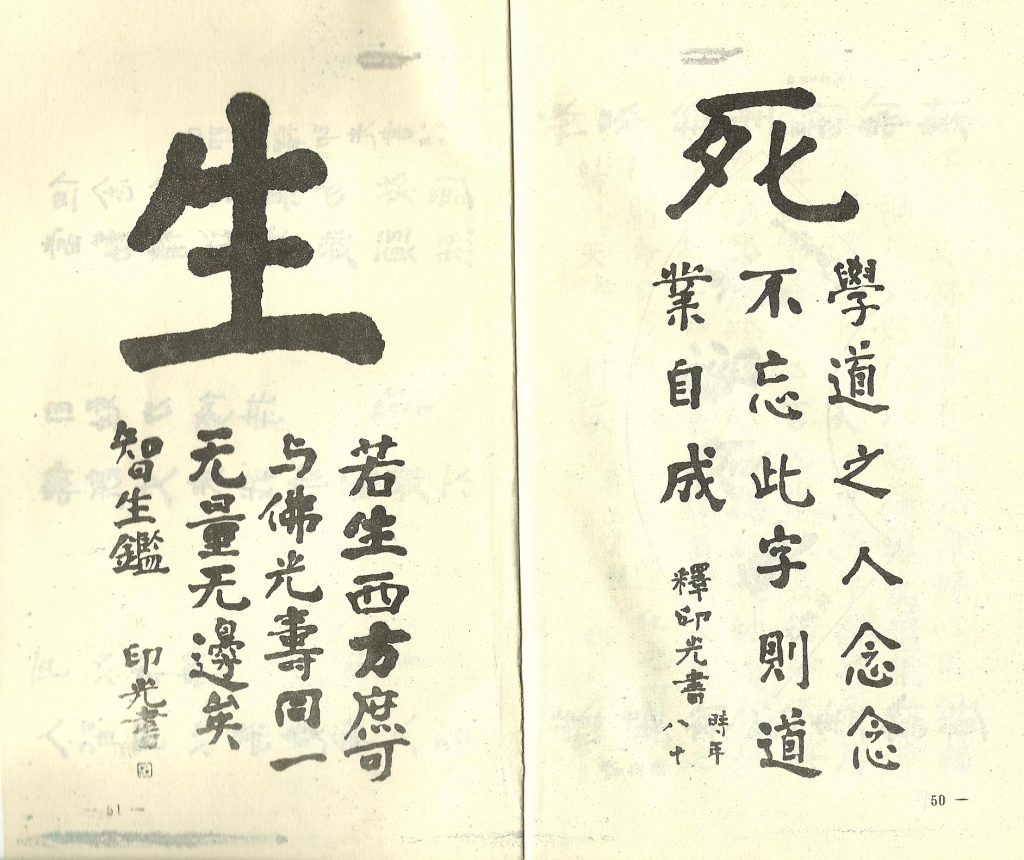 死
學道之人念念
不忘此字則道
業自成
釋印光書
時年
八十
50 —
生
若生西方庶可
与佛光壽同一
无量无邊矣
智生鑑
印光書
— 51 —